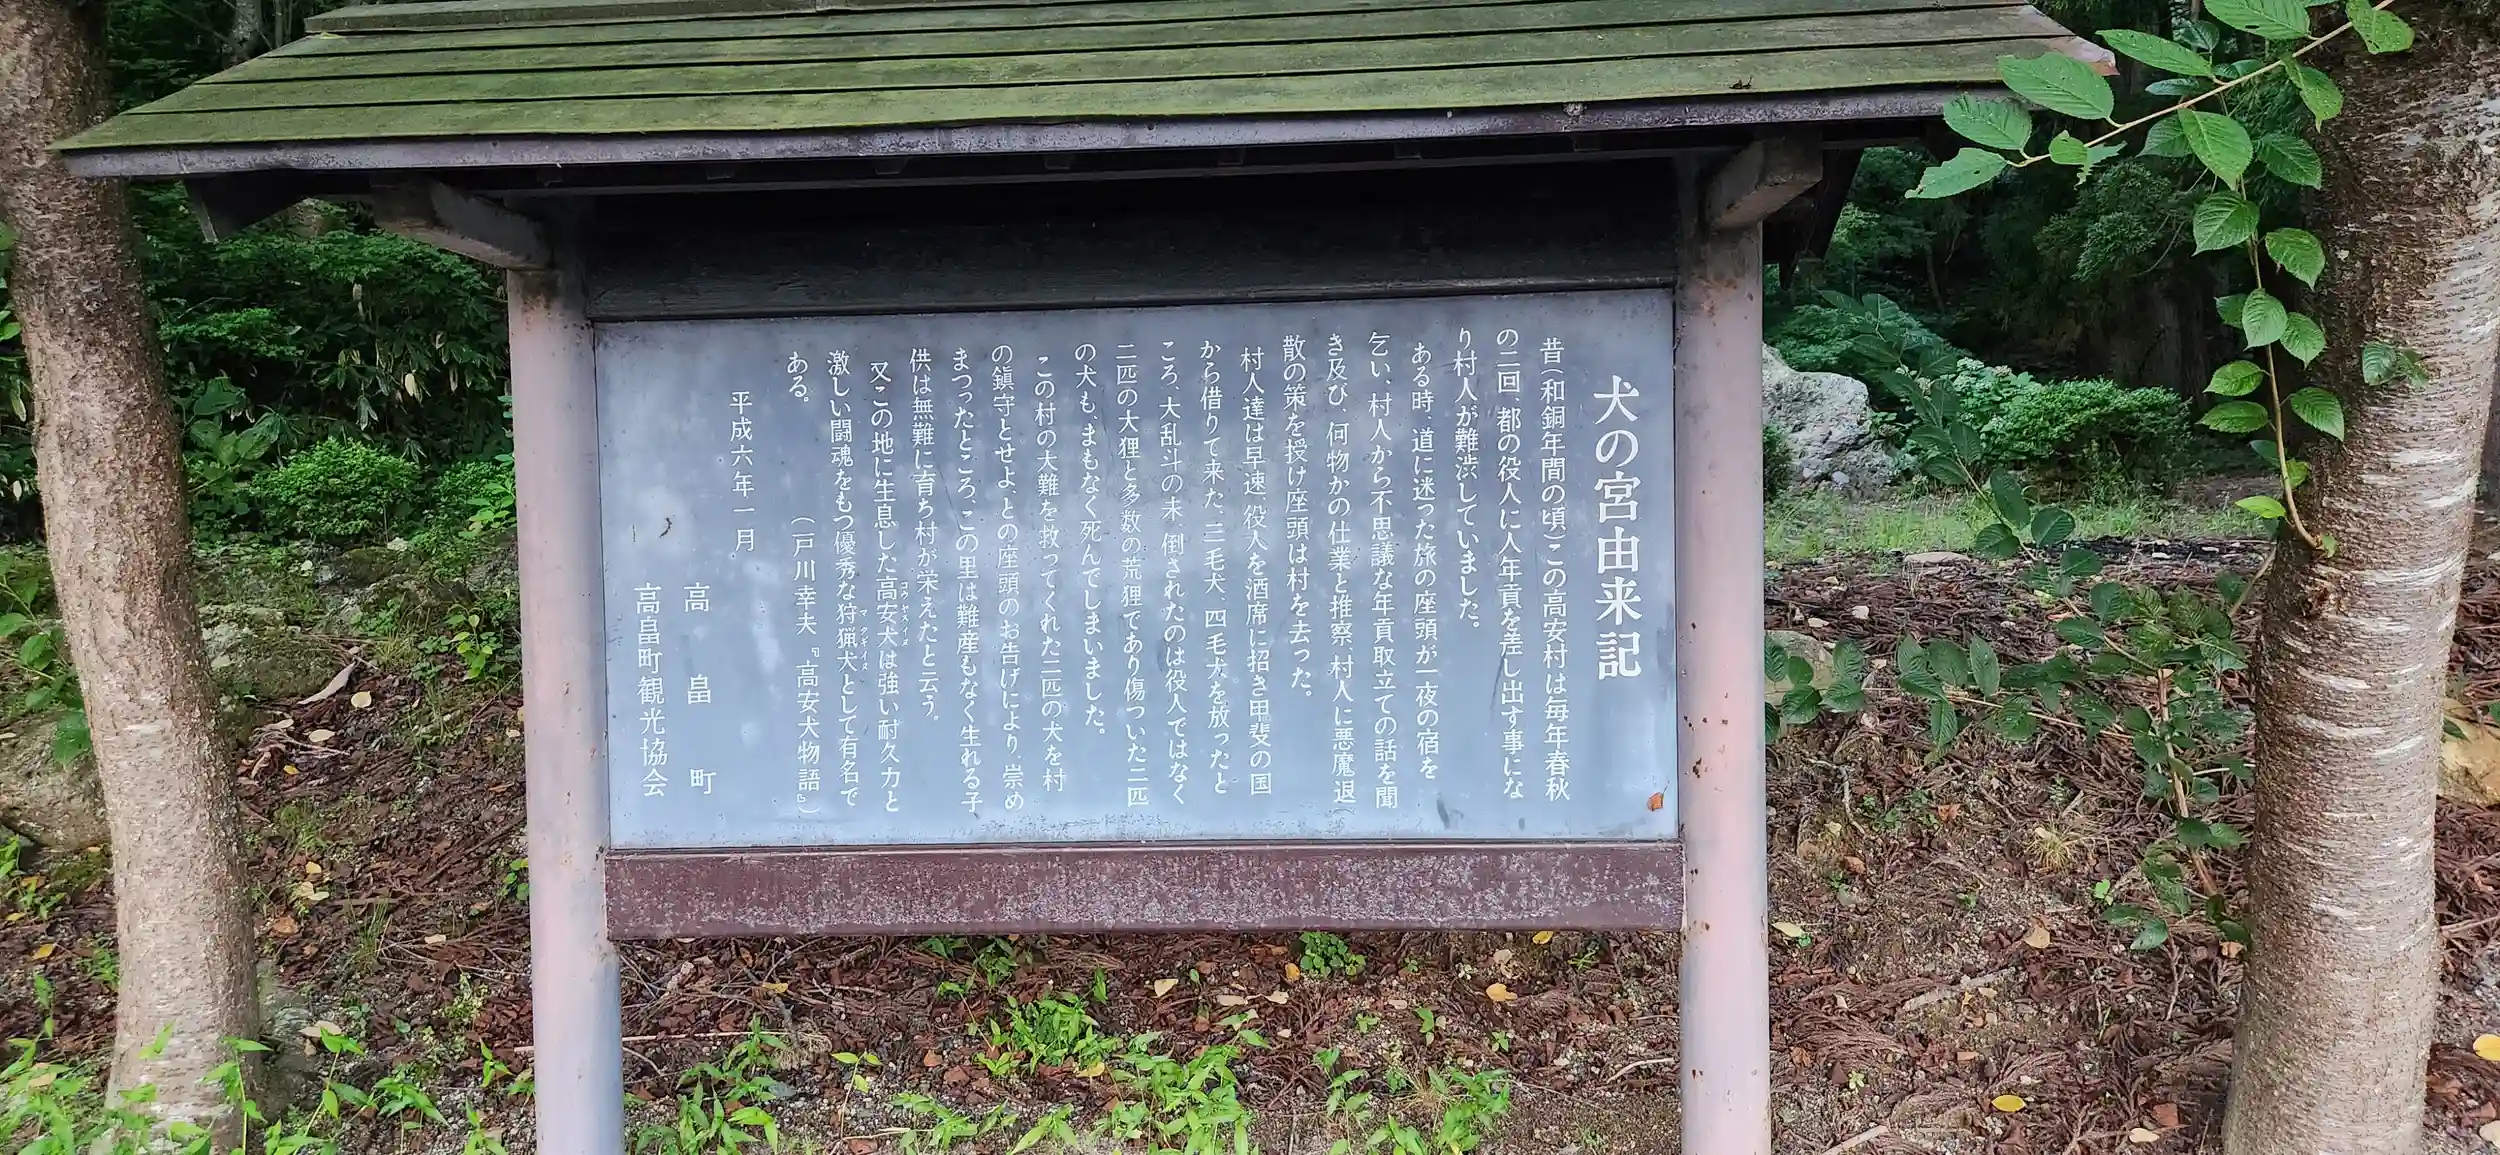 犬の宮由来記
昔(和銅年間の頃)この高安村は毎年春秋
の二回、都の役人に人年貢を差し出す事にな
り村人が難渋していました。
ある時、道に迷った旅の座頭が一夜の宿を
乞い、村人から不思議な年貢取立ての話を聞
き及び、何物かの仕業と推察、村人に悪魔退
散の策を授け座頭は村を去った。
村人達は早速、役人を酒席に招き甲斐の国
から借りて来た、三毛犬、四毛犬を放ったと
ころ、大乱斗の末、倒されたのは役人ではなく
二匹の大狸と多数の荒狸であり傷ついた二匹
の犬も、まもなく死んでしまいました。
この村の大難を救ってくれた二匹の犬を村
の鎮守とせよ、との座頭のお告げにより、崇め
まつったところ、この里は難産もなく生れる子
供は無難に育ち村が栄えたと云う。
又この地に生息した高安犬は強い耐久力と
コウヤスイヌ
激しい闘魂をもつ優秀な狩猟犬として有名で
マタギイヌ
ある。
(戸川幸夫『高安犬物語』)
平成六年一月
高畠町
高畠町観光協会